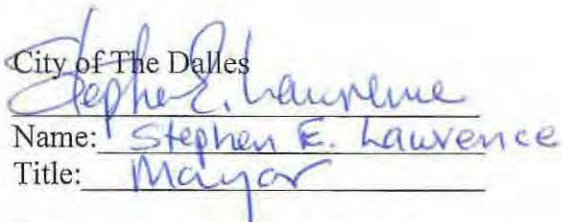 City of The Dalles
Stephen E. Lawrence
Name: Stephen E. Lawrence
Title: Mayor